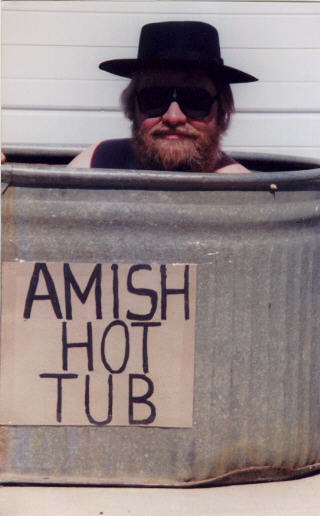 AMISH
HOT
TUB